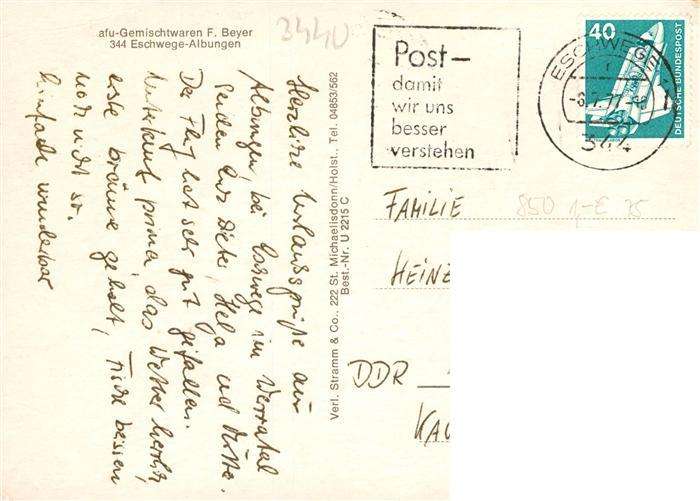 afu-Gemischtwaren F. Beyer
344 Eschwege-Albungen
3440
Herzliche Urlaubsgrüße aus
Albungen, bei Eschwege im Werratal
senden Euch Dieter, Helga und
Der Flug hat sehr gut gefallen.
Unterkunft prima, das Wetter herrlich
erste bräune geholt, Fische beissen
noch nicht so.
Einfach wunderbar
Verl. Stramm & Co., 222 St. Michaelisdonn/Holst., Tel. 04853/562
Best.-Nr. U 2215 C
Post–
damit
wir uns
besser
verstehen
ESCHWEGE
344
40
DEUTSCHE BUNDESPOST
FAMILIE
850
HEINZ
DDR
KAU